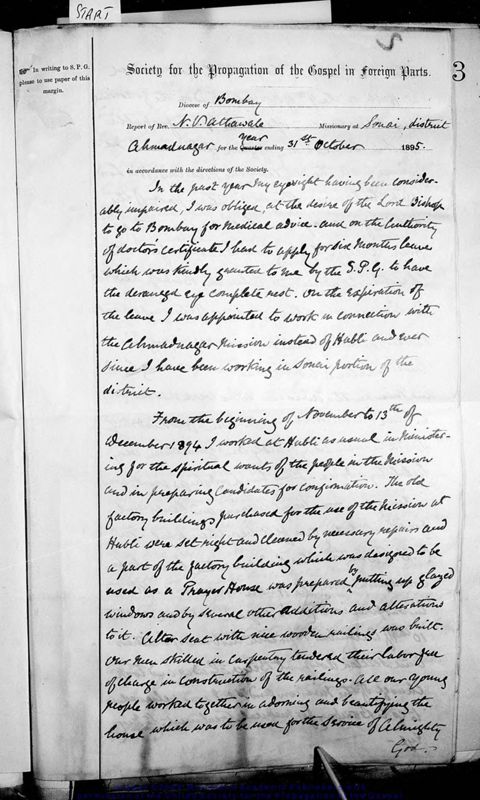 START
In writing to S. P. G.
please to use paper of this
margin.
3
Society for the Propagation of the Gospel in Foreign Parts.
Diocese of Bombay
Report of Rev. N. V. Athawale Missionary at Sonai, district
Ahmadnagar for the Quarter year ending 31st October 1895.
in accordance with the directions of the Society.
In the past year my eyesight having been consider-
ably impaired, I was obliged, at the desire of the Lord Bishop
to go to Bombay for Medical advice - and on the Authority
of doctor's certificate I had to apply for six Months leave
which was kindly granted to me by the S.P.G. to have
the deranged eye complete rest. On the Expiration of
the leave I was appointed to work in connection with
the Ahmadnagar Mission instead of Hubli and ever
since I have been working in Sonai portion of the
district.
From the beginning of November to 13th of
December 1894 I worked at Hubli as usual in Minister-
ing for the spiritual wants of the people in the Mission
and in preparing Candidates for confirmation. The old
factory buildings purchased for the use of the Mission at
Hubli were set right and cleaned by necessary repairs and
a part of the factory building which was designed to be
used as a Prayer House was prepared by putting up glazed
windows and by several other additions and alterations
to it. Altar seat with nice wooden railings was built.
Our men skilled in Carpentry tendered their labor free
of charge in construction of the railings. All our young
people worked together in adorning and beautifying the
house which was to be used for the Service of Almighty
God.